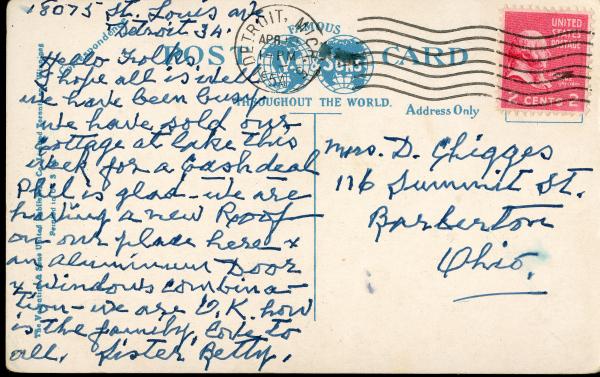 18075 St. Louis ave
Detroit 34.
Hello Folks,
I hope all is well
we have been busy
we have sold our
cottage at lake this
week for a cash deal
Phil is glad - we are
having a new Roof
on our place here &
an aluminum Door
& windows combina-
tion - we are O.K. how
is the family, love to
all. Sister Betty.
FAMOUS
POST CARD
THROUGHOUT THE WORLD.
Address Only
DETROIT, MICH.
APR
PM
UNITED
STATES
POSTAGE
2 CENTS 2
Mrs. D. Chigges
116 Summit St.
Barberton
Ohio.